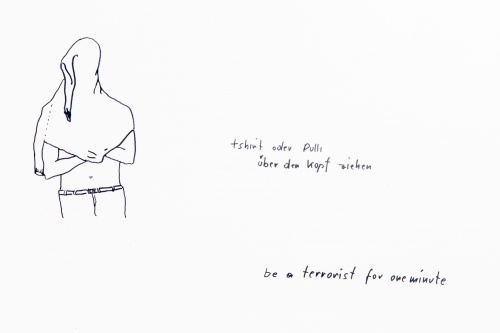 tshirt oder Pulli
über den Kopf ziehen
be a terrorist for one minute